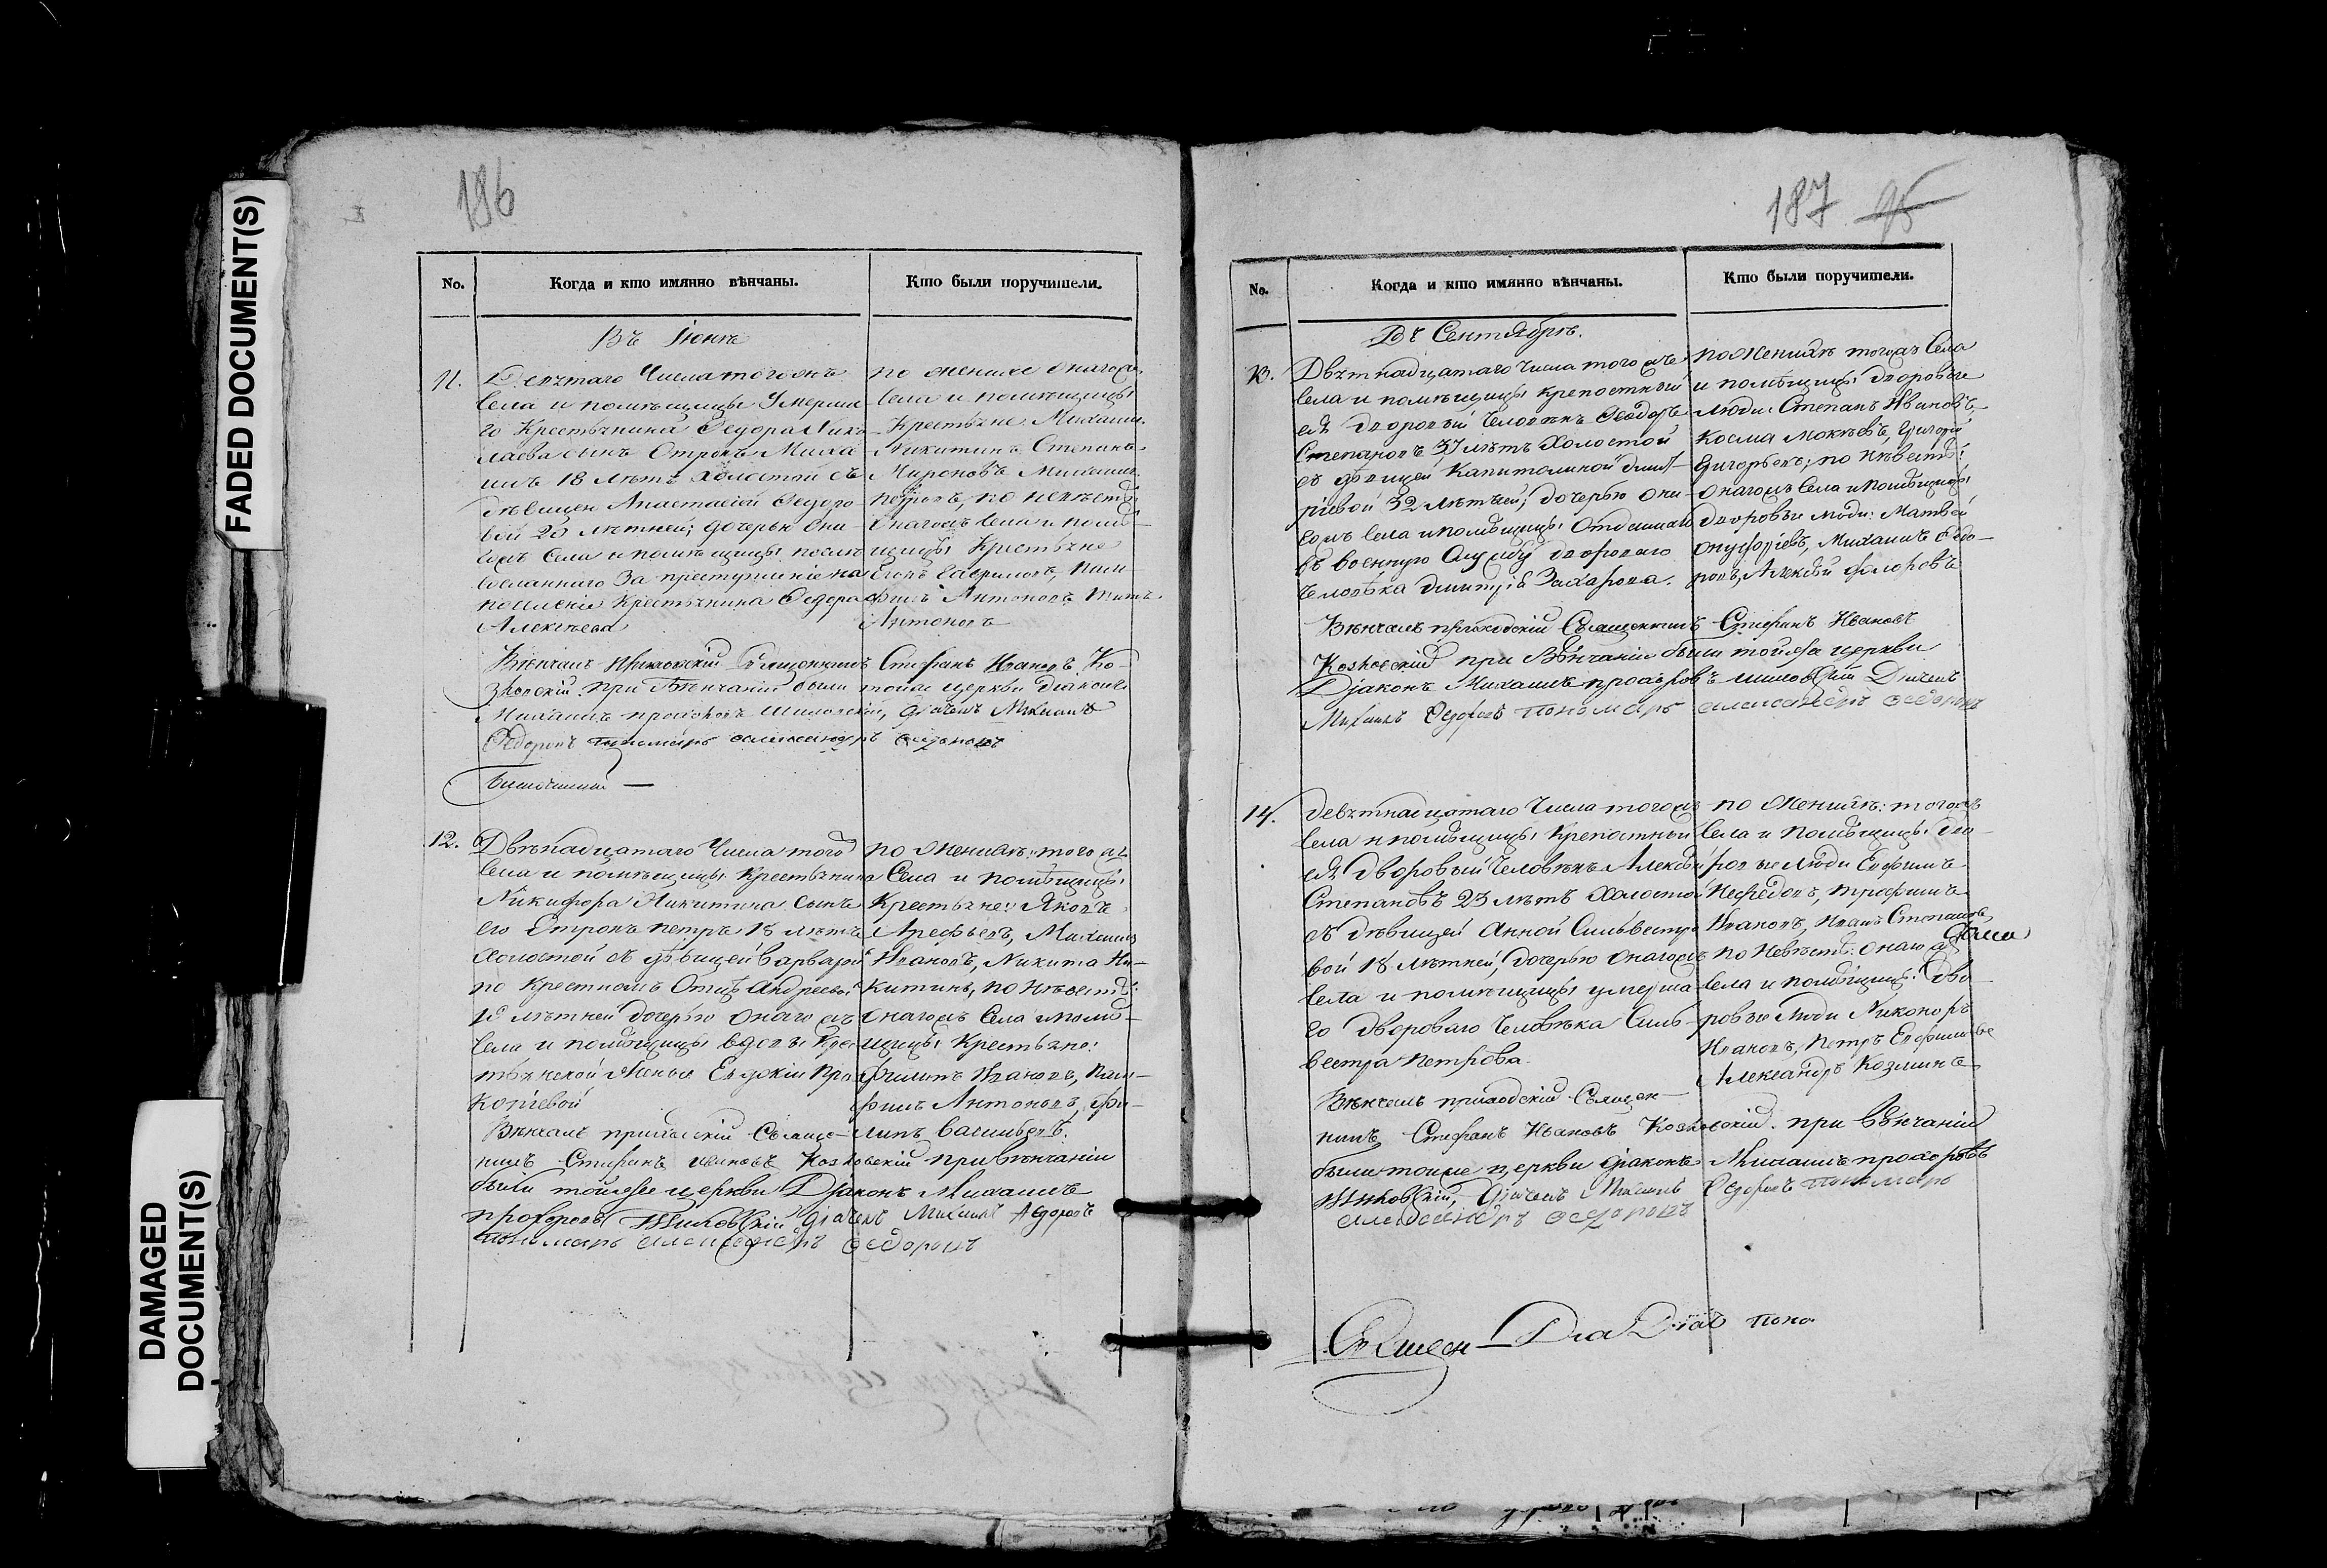 FADED DOCUMENT(S)
DAMAGED
DOCUMENT(S)
186
No.
Когда и кто имянно вѣнчаны.
Кто были поручители.
Въ Іюнѣ
11.
Девятаго Числа тогожъ
села и помѣщицы Умерша
го Крестьянина Федора Ник
лаева сынъ Отрокъ Миха
илъ 18 лѣтъ холостой съ
дѣвицей Анастасіей Федоро
вой 20 лѣтней; дочерью она
гожъ Села и помѣщицы
сосланнаго За преступленіе на
поселеніе Крестьянина Федора
Алексѣева
по женихе онагожъ
села и помѣщицы
Крестьяне: Михаилъ
Никитинъ, Степанъ
Мироновъ, Михаилъ
Петровъ, по невѣстѣ
Онагожъ Села и помѣ-
щицы Крестьяне
Егоръ Гавриловъ, Пам
филъ Антоновъ
Антоновъ
Вѣнчалъ Приходскій Священникъ Стефанъ Ивановъ Ко-
зловскій при Вѣнчаніи были тойже церкви Діаконъ
Михаилъ Прохоровъ Шиловскій, Дьячекъ Михаилъ
Федоровъ пономарь Александръ Федоровъ
12.
Двѣнадцатаго Числа того
Села и помѣщицы Крестьянина
Никифора Никитина сынъ
его Отрокъ Петръ 18 лѣтъ
Холостой съ дѣвицей Варварой
по Крестномъ Отцѣ Андреевой
18 лѣтней дочерью онаго жъ
Села и помѣщицы вдовы Крес
тьянской Жены Евдокіи Про
копіевой
по Женихѣ: того жъ
Села и помѣщицы
Крестьяне: Яковъ
Арефьевъ, Михаилъ
Ивановъ, Никита Ни-
китинъ, по невѣстѣ:
онагожъ Села и помѣ-
щицы Крестьяне:
Филипъ Ивановъ, Пам-
филъ Антоновъ, Фи-
липъ Васильевъ.
Вѣнчалъ приходскій Священ-
никъ Стефанъ Ивановъ Козловскій при вѣнчаніи
были тойже церкви Діаконъ Михаилъ
Прохоровъ Шиловскій Дьячекъ Михаилъ Федоровъ
пономарь Александръ Федоровъ
187 95
No.
Когда и кто имянно вѣнчаны.
Кто были поручители.
Въ Сентябрѣ.
13.
Двѣтнадцатаго Числа того же
села и помѣщицы крепостный
ея дворовый Человѣкъ Феодоръ
Степановъ 37 лѣтъ Холостой
съ дѣвицей Капитолиной Дмит-
ріевой 32 лѣтней; дочерью она-
гожъ села и помѣщицы Отданнаго
въ военную Службу двороваго
человѣка Дмитрія Захарова.
по Женихѣ тогожъ Села
и помѣщицы дворовые
люди: Степанъ Ивановъ,
Косма Мокѣевъ, Григорій
Григорьевъ; по Невѣстѣ:
Онагожъ Села и помѣщицы
дворовые люди: Матвей
Онуфріевъ, Михаилъ Федо-
ровъ, Алексѣй Флоровъ
Вѣнчалъ приходскій Священникъ Стефанъ Ивановъ
Козловскій при Вѣнчаніи были тойже церкви
Діаконъ Михаилъ Прохоровъ Шиловскій Дьячекъ
Михаилъ Федоровъ Пономарь Александръ Федоровъ
14.
Девятнадцатаго Числа тогожъ
села и помѣщицы Крепостный
ея Дворовый Человѣкъ Алексѣй
Степановъ 23 лѣтъ Холостой
съ дѣвицей Анной Сильвестро
вой 18 лѣтней, дочерью онагожъ
села и помѣщицы умерша
го Двороваго Человѣка Силь-
вестра Петрова.
по Женихѣ: тогожъ
Села и Помѣщицы дво-
ровые Люди Ефимъ
Нефедовъ, Трофимъ
Ивановъ, Иванъ Степановъ,
по Невѣстѣ: онаго жъ
села и помѣщицы дво-
ровые Люди Никоноръ
Ивановъ, Петръ Ефимовъ
Александръ Козминъ
Вѣнчалъ приходскій Священ-
никъ Стефанъ Ивановъ Козловскій. при Вѣнчаніи
были тойже церкви Діаконъ Михаилъ Прохоровъ
Шиловскій, Дьячекъ Михаилъ Федоровъ Пономарь
Александръ Федоровъ
Священ- Діа Дьяч Поно.